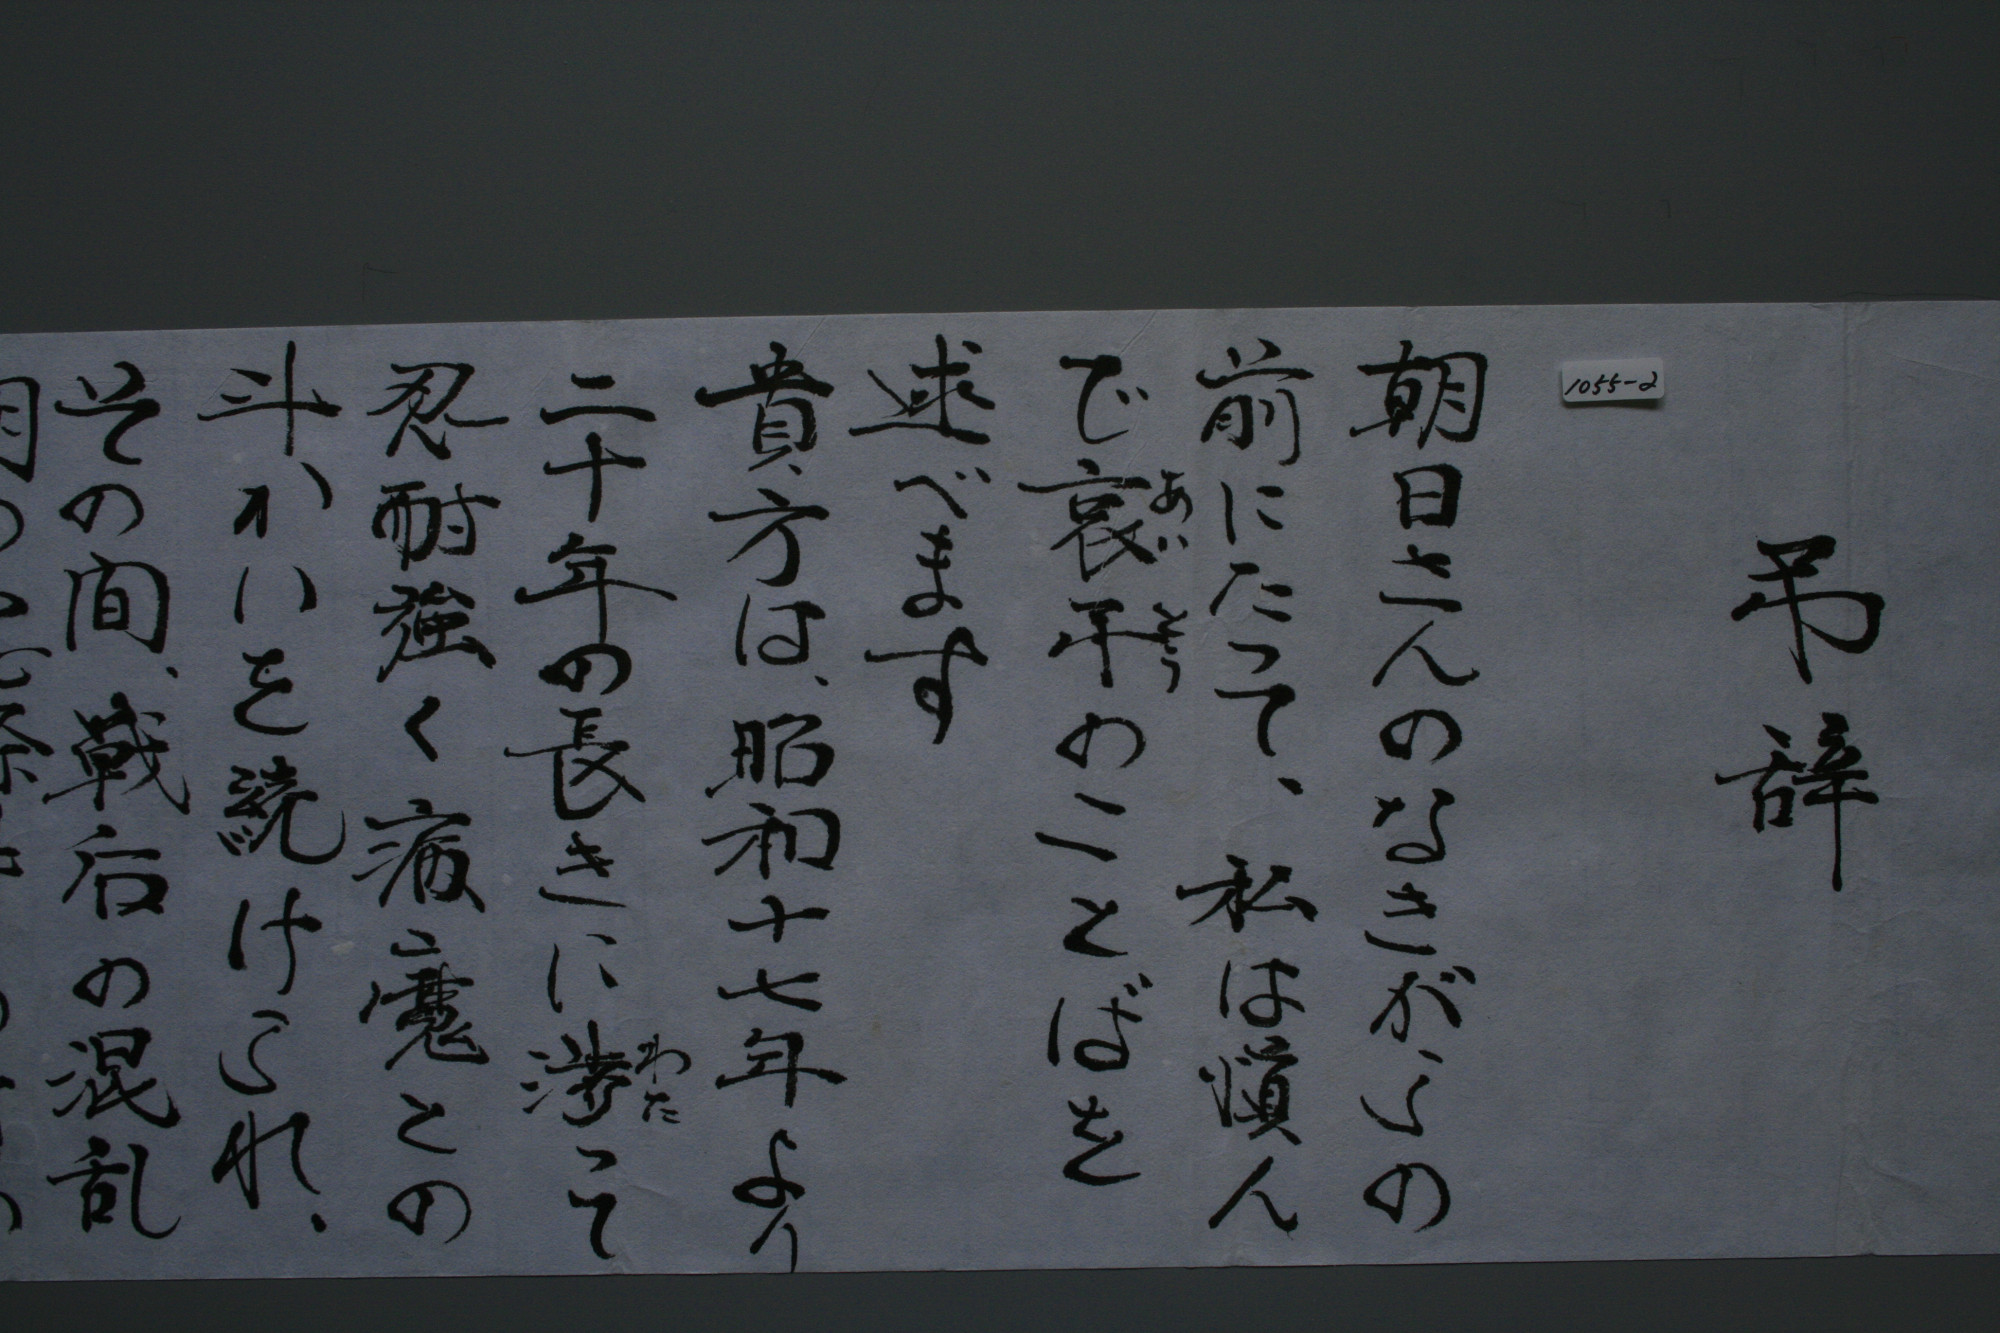 弔辞
1055-2
朝日さんのなきがらの
前にたって、私は慎ん
あい とう
で哀弔のことばを
述べます
貴方は、昭和十七年より
わた
二十年の長きに渉って
忍耐強く病魔との
斗かいを続けられ、
その間、戦后の混乱